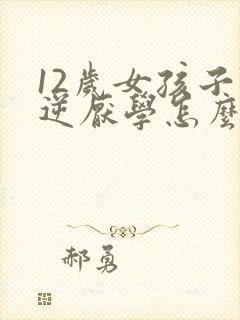 12歲女孩子
逆厭學怎麼
郝勇